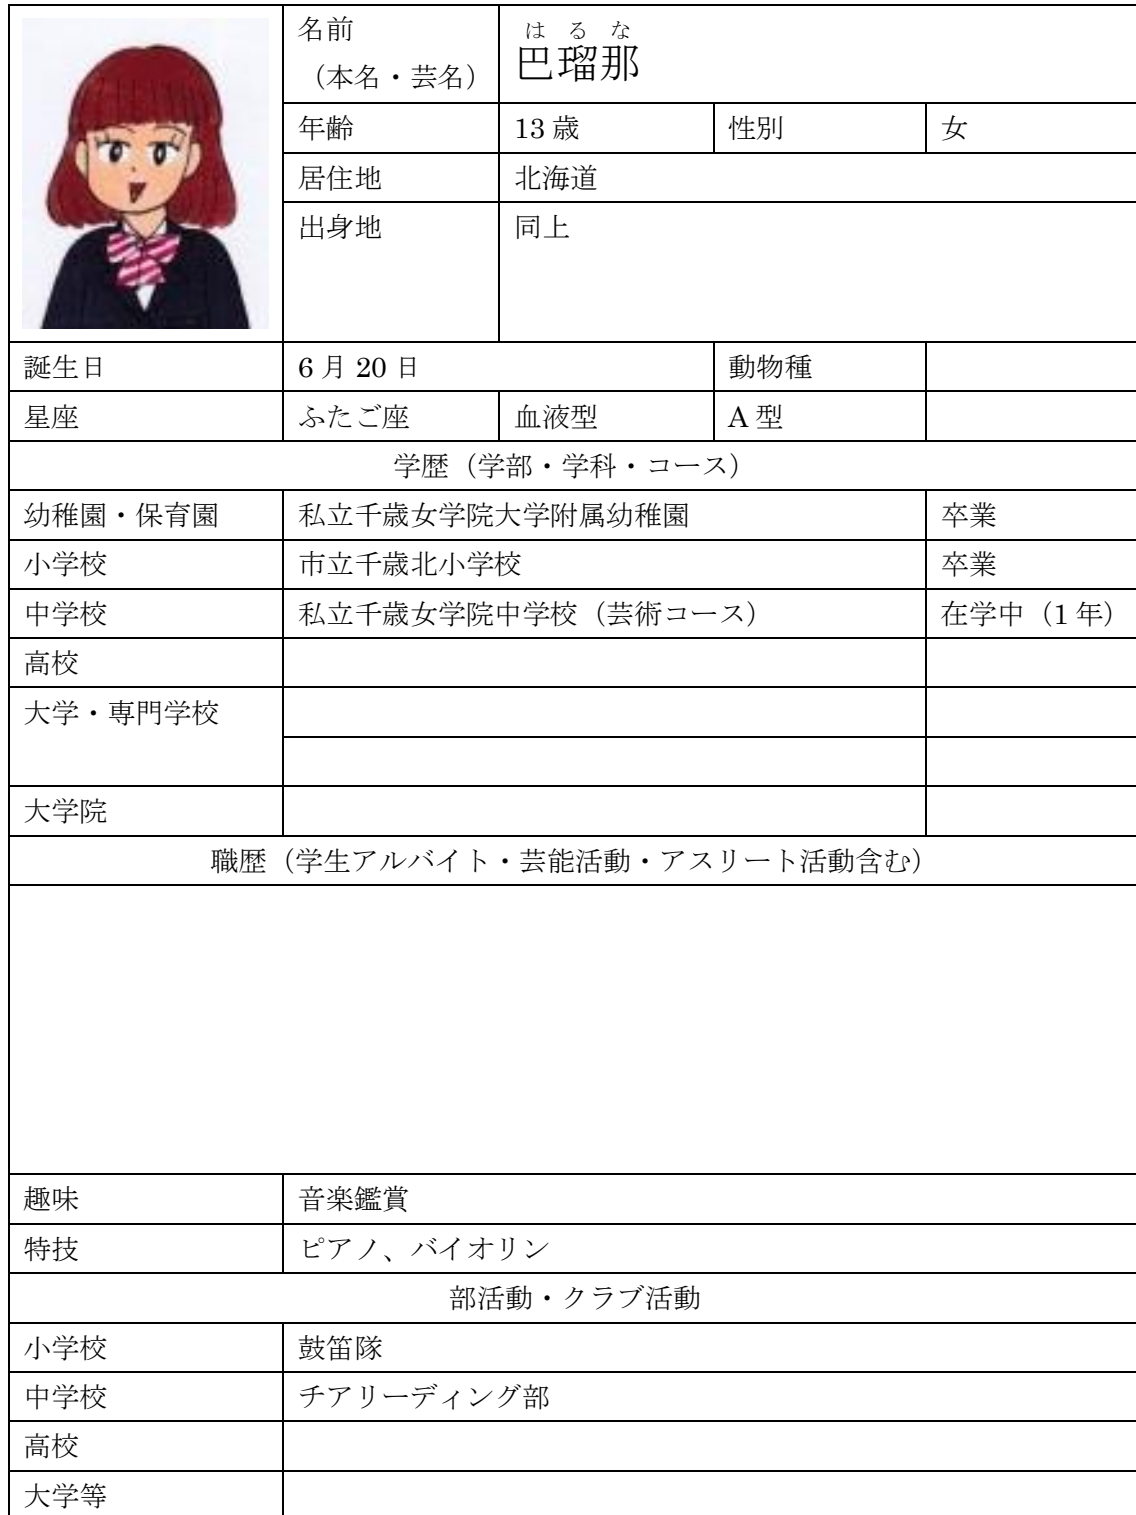 名前
（本名・芸名）
はるな
巴瑠那
年齢 13歳 性別 女
居住地 北海道
出身地 同上
誕生日 6月20日 動物種
星座 ふたご座 血液型 A型
学歴（学部・学科・コース）
幼稚園・保育園 私立千歳女学院大学附属幼稚園 卒業
小学校 市立千歳北小学校 卒業
中学校 私立千歳女学院中学校（芸術コース） 在学中（1年）
高校
大学・専門学校
大学院
職歴（学生アルバイト・芸能活動・アスリート活動含む）
趣味 音楽鑑賞
特技 ピアノ、バイオリン
部活動・クラブ活動
小学校 鼓笛隊
中学校 チアリーディング部
高校
大学等